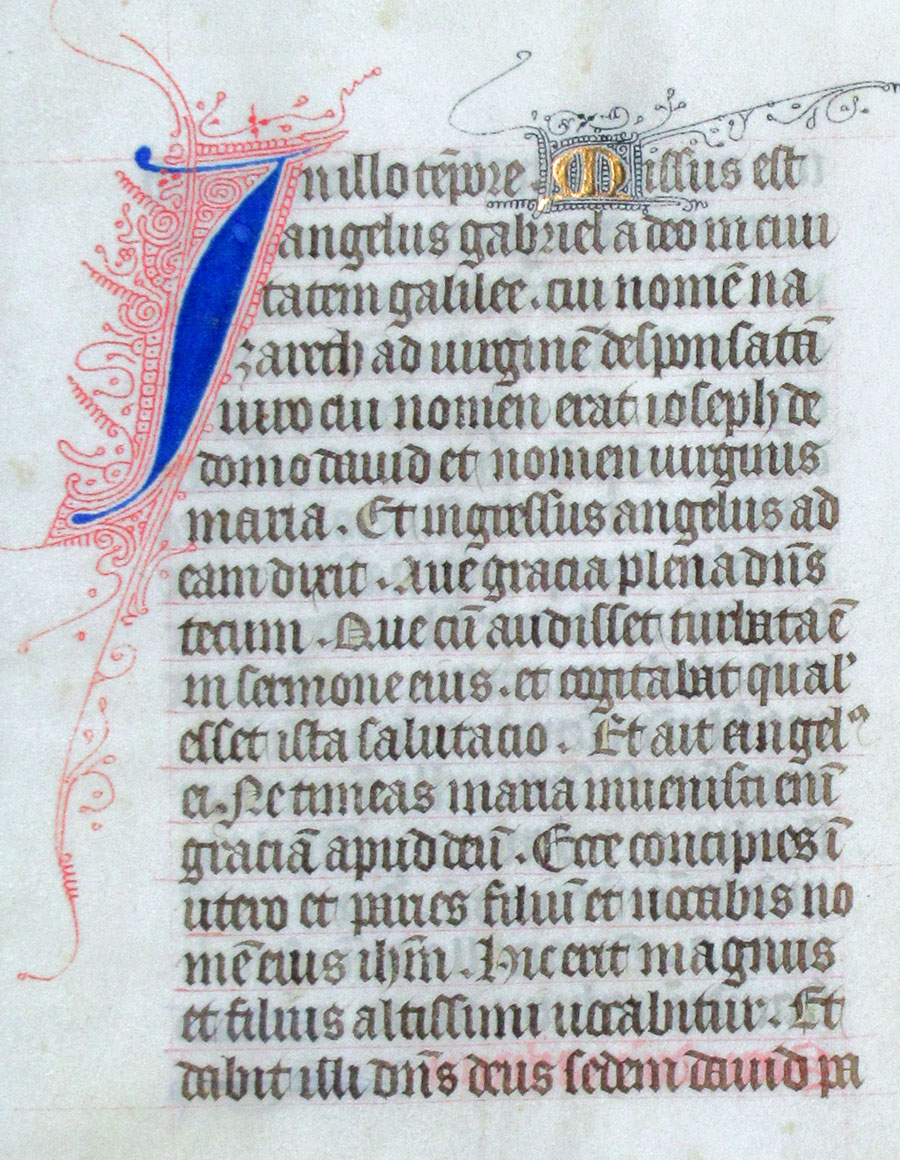 In illo tēpore . Missus est
angelus gabriel a deo in ciui
tatem galilee . cui nomē na
zareth ad uirginē desponsatā
uiro cui nomen erat ioseph de
domo dauid et nomen uirginis
maria . Et ingressus angelus ad
eam dixit . Aue gracia plena dn̄s
tecum . Que cū audisset turbata ē
in sermone eius . et cogitabat qual'
esset ista salutacio . Et ait angelꝰ
ei . Ne timeas maria inuenisti enī
graciā apud deū . Ecce concipies ī
utero et paries filiū et uocabis no
mē eius ihm̄ . Hic erit magnus
et filius altissimi uocabitur . Et
dabit illi dn̄s deus sedem dauid pa